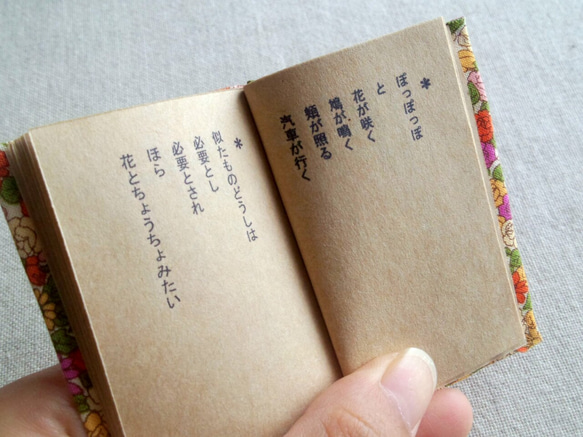 *
ぽっぽっぽ
と
花が咲く
鳩が鳴く
頬が照る
汽車が行く
*
似たものどうしは
必要とし
必要とされ
ほら
花とちょうちょみたい